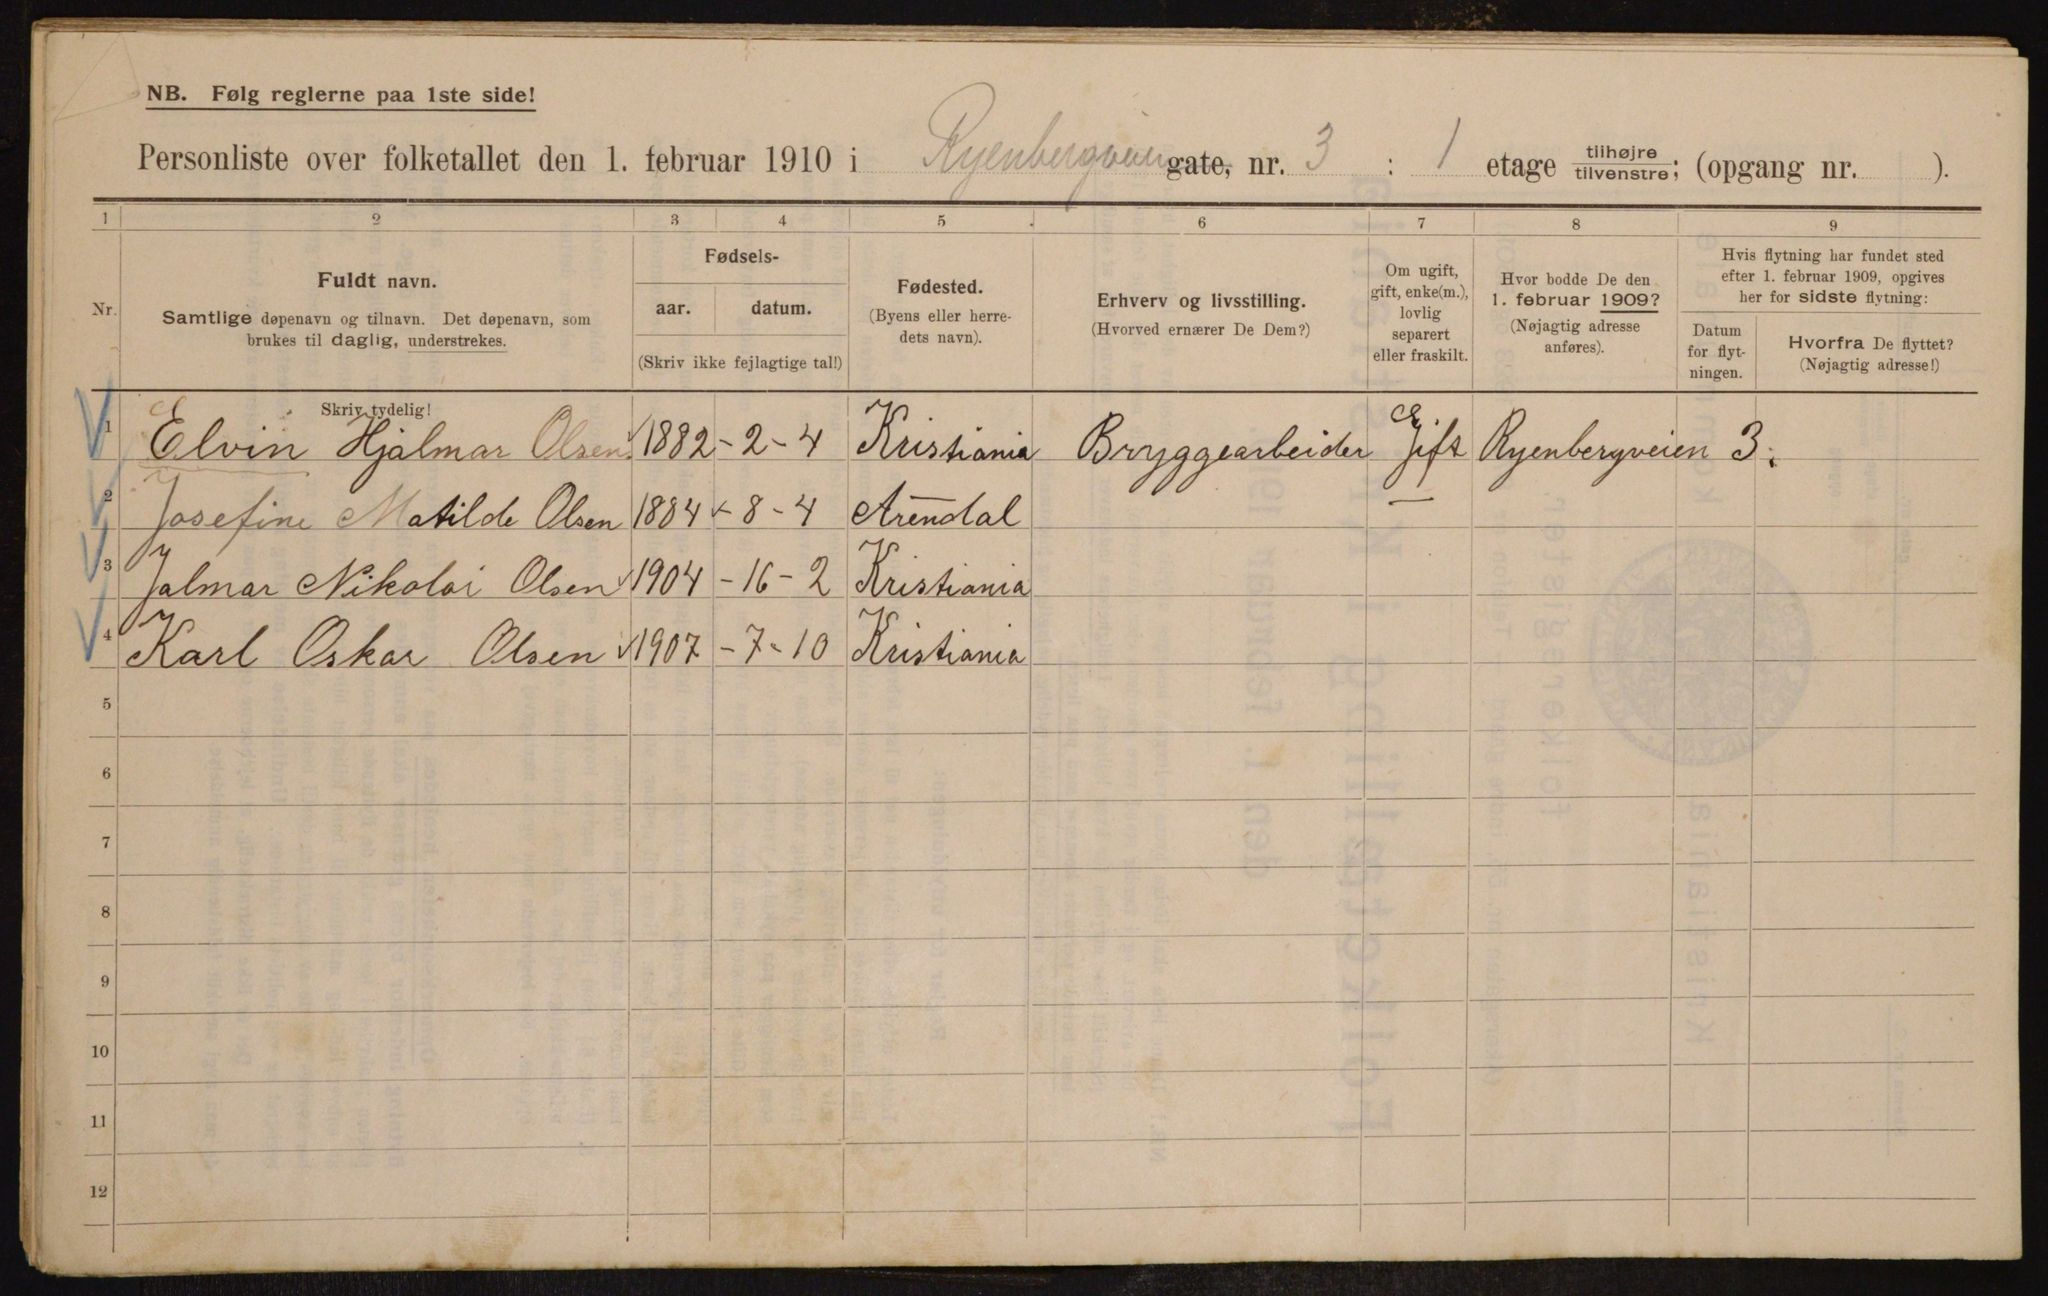 NB. Følg reglerne paa 1ste side!
Personliste over folketallet den 1. februar 1910 i Ryenbergveien gate, nr. 3 : 1 etage tilhøjre tilvenstre; (opgang nr. ).
1 2 3 4 5 6 7 8 9
Nr.
Fuldt navn.
Samtlige døpenavn og tilnavn. Det døpenavn, som
brukes til daglig, understrekes.
Fødsels-
aar. datum.
(Skriv ikke fejlagtige tal!)
Fødested.
(Byens eller herre-
dets navn).
Erhverv og livsstilling.
(Hvorved ernærer De Dem?)
Om ugift,
gift, enke(m.),
lovlig
separert
eller fraskilt.
Hvor bodde De den
1. februar 1909?
(Nøjagtig adresse
anføres).
Hvis flytning har fundet sted
efter 1. februar 1909, opgives
her for sidste flytning:
Datum
for flyt-
ningen.
Hvorfra De flyttet?
(Nøjagtig adresse!)
Skriv tydelig!
1 Elvin Hjalmar Olsen 1882 - 2 - 4 Kristiania Bryggearbeider Gift Ryenbergveien 3.
2 Josefine Matilde Olsen 1884 - 8 - 4 Arendal —
3 Jalmar Nikolai Olsen 1904 - 16 - 2 Kristiania
4 Karl Oskar Olsen 1907 - 7 - 10 Kristiania
5
6
7
8
9
10
11
12